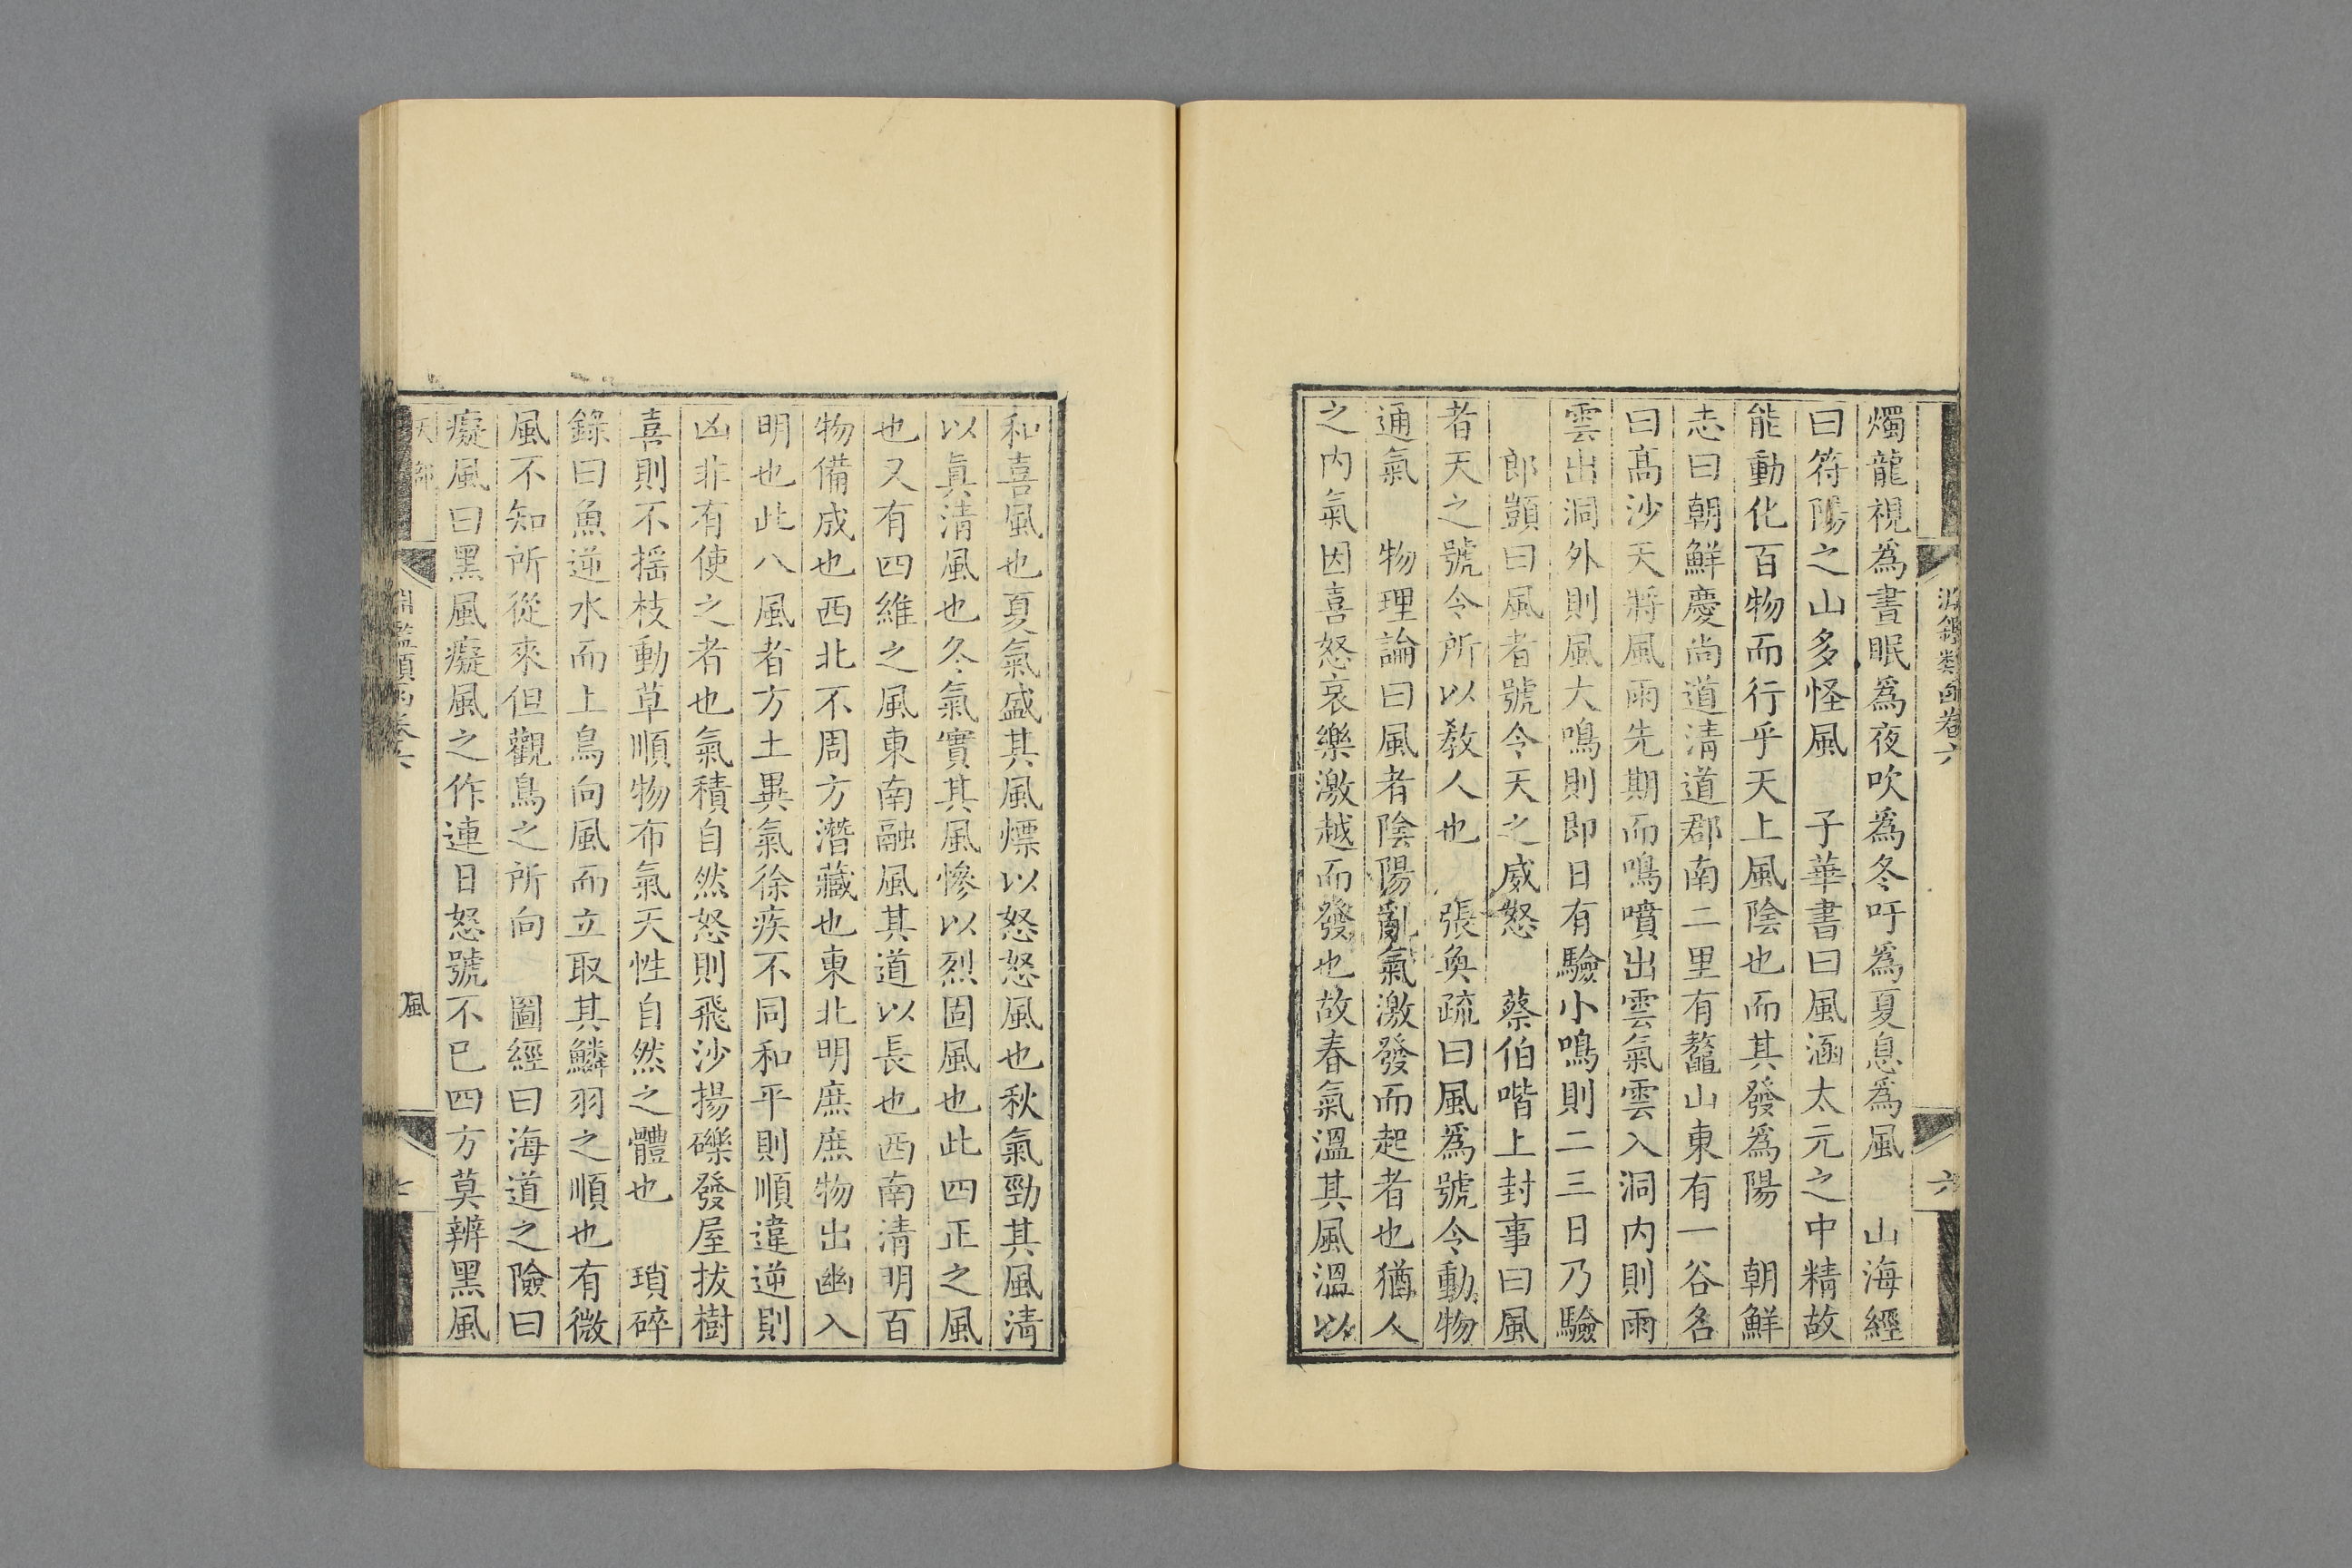 淵鑑類函卷六
六
燭龍視爲晝眠爲夜吹爲冬吁爲夏息爲風　山海經
曰符陽之山多怪風　子華書曰風涵太元之中精故
能動化百物而行乎天上風陰也而其發爲陽　朝鮮
志曰朝鮮慶尚道清道郡南二里有鼇山東有一谷名
曰高沙天將風雨先期而鳴噴出雲氣雲入洞内則雨
雲出洞外則風大鳴則即日有驗小鳴則二三日乃驗
郎顗曰風者號令天之威怒　蔡伯喈上封事曰風
者天之號令所以敎人也　張奐疏曰風爲號令動物
通氣　物理論曰風者陰陽亂氣激發而起者也猶人
之内氣因喜怒哀樂激越而發也故春氣溫其風溫以
和喜風也夏氣盛其風熛以怒怒風也秋氣勁其風清
以眞清風也冬氣實其風慘以烈固風也此四正之風
也又有四維之風東南融風其道以長也西南清明百
物備成也西北不周方潛藏也東北明庶庶物出幽入
明也此八風者方土異氣徐疾不同和平則順違逆則
凶非有使之者也氣積自然怒則飛沙揚礫發屋拔樹
喜則不摇枝動草順物布氣天性自然之體也　瑣碎
錄曰魚逆水而上鳥向風而立取其鱗羽之順也有微
風不知所從來但觀鳥之所向　圖經曰海道之險曰
癡風曰黑風癡風之作連日怒號不巳四方莫辨黑風
天部
淵鑑類函卷六
風
七